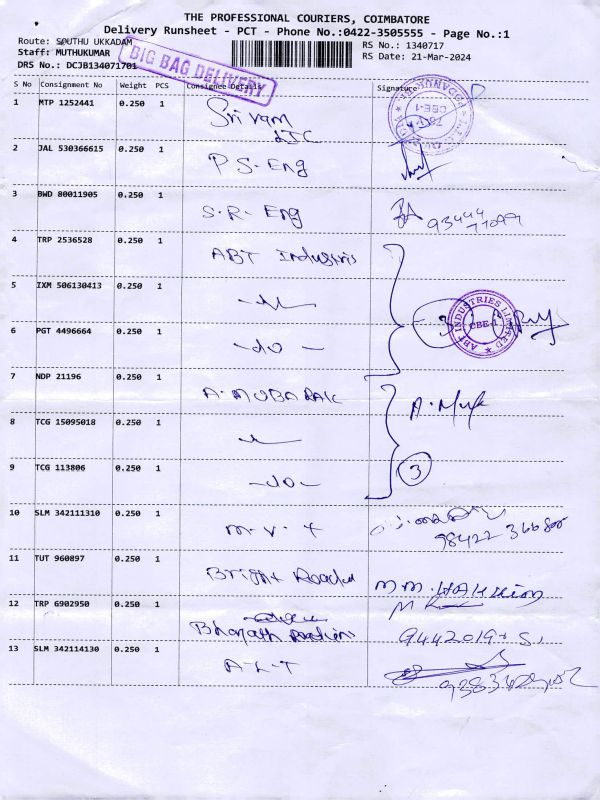 THE PROFESSIONAL COURIERS, COIMBATORE
Delivery Runsheet - PCT - Phone No.:0422-3505555 - Page No.:1
Route: SOUTHU UKKADAM
RS No.: 1340717
Staff: MUTHUKUMAR
RS Date: 21-Mar-2024
DRS No.: DCJB134071701
BIG BAG DELIVERY
S No Consignment No Weight PCS Consignee Details Signature
1 MTP 1252441 0.250 1 Sri ram
LIC
2 JAL 530366615 0.250 1 P S. Eng
3 BWD 80011905 0.250 1 S. R. Eng
4 TRP 2536528 0.250 1 ABT
5 IXM 506130413 0.250 1
6 PGT 4496664 0.250 1 - do - 3
ABT INDUSTRIES LIMITED CBE-1
7 NDP 21196 0.250 1 A. MUBARAK
8 TCG 15095018 0.250 1
9 TCG 113806 0.250 1 - do - 3
10 SLM 342111310 0.250 1 M. V. T
11 TUT 960897 0.250 1 Bright
12 TRP 6902950 0.250 1 Bharath
13 SLM 342114130 0.250 1 A. L. T